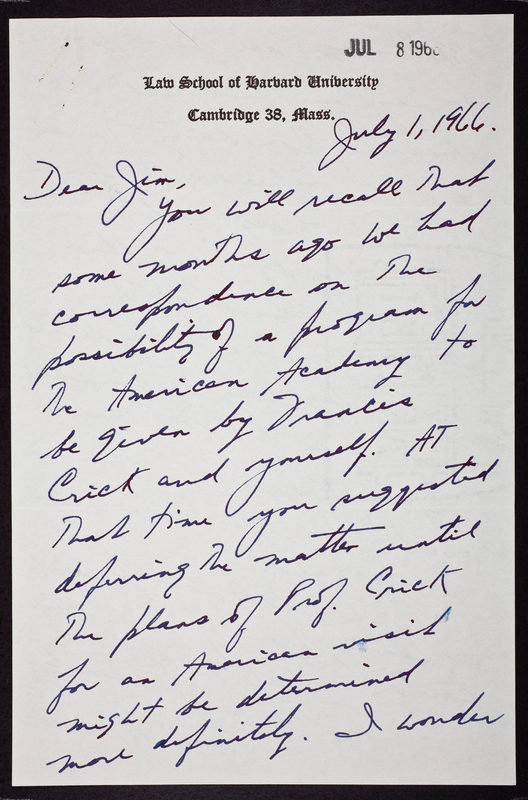 JUL 8 1966
Law School of Harvard University
Cambridge 38, Mass.
July 1, 1966.
Dear Jim,
You will recall that
some months ago we had
correspondence on the
possibility of a program for
the American Academy to
be given by Francis
Crick and yourself. At
that time you suggested
deferring the matter until
the plans of Prof. Crick
for an American visit
might be determined
more definitely. I wonder